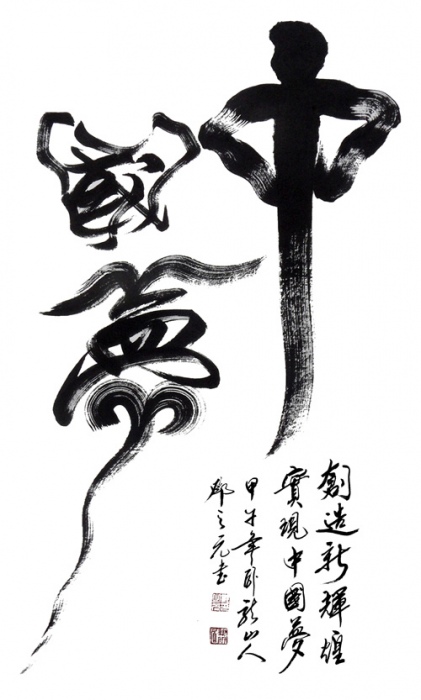 中
國夢
創造新輝煌
實現中國夢
甲午年臥龍山人
鄧之元書